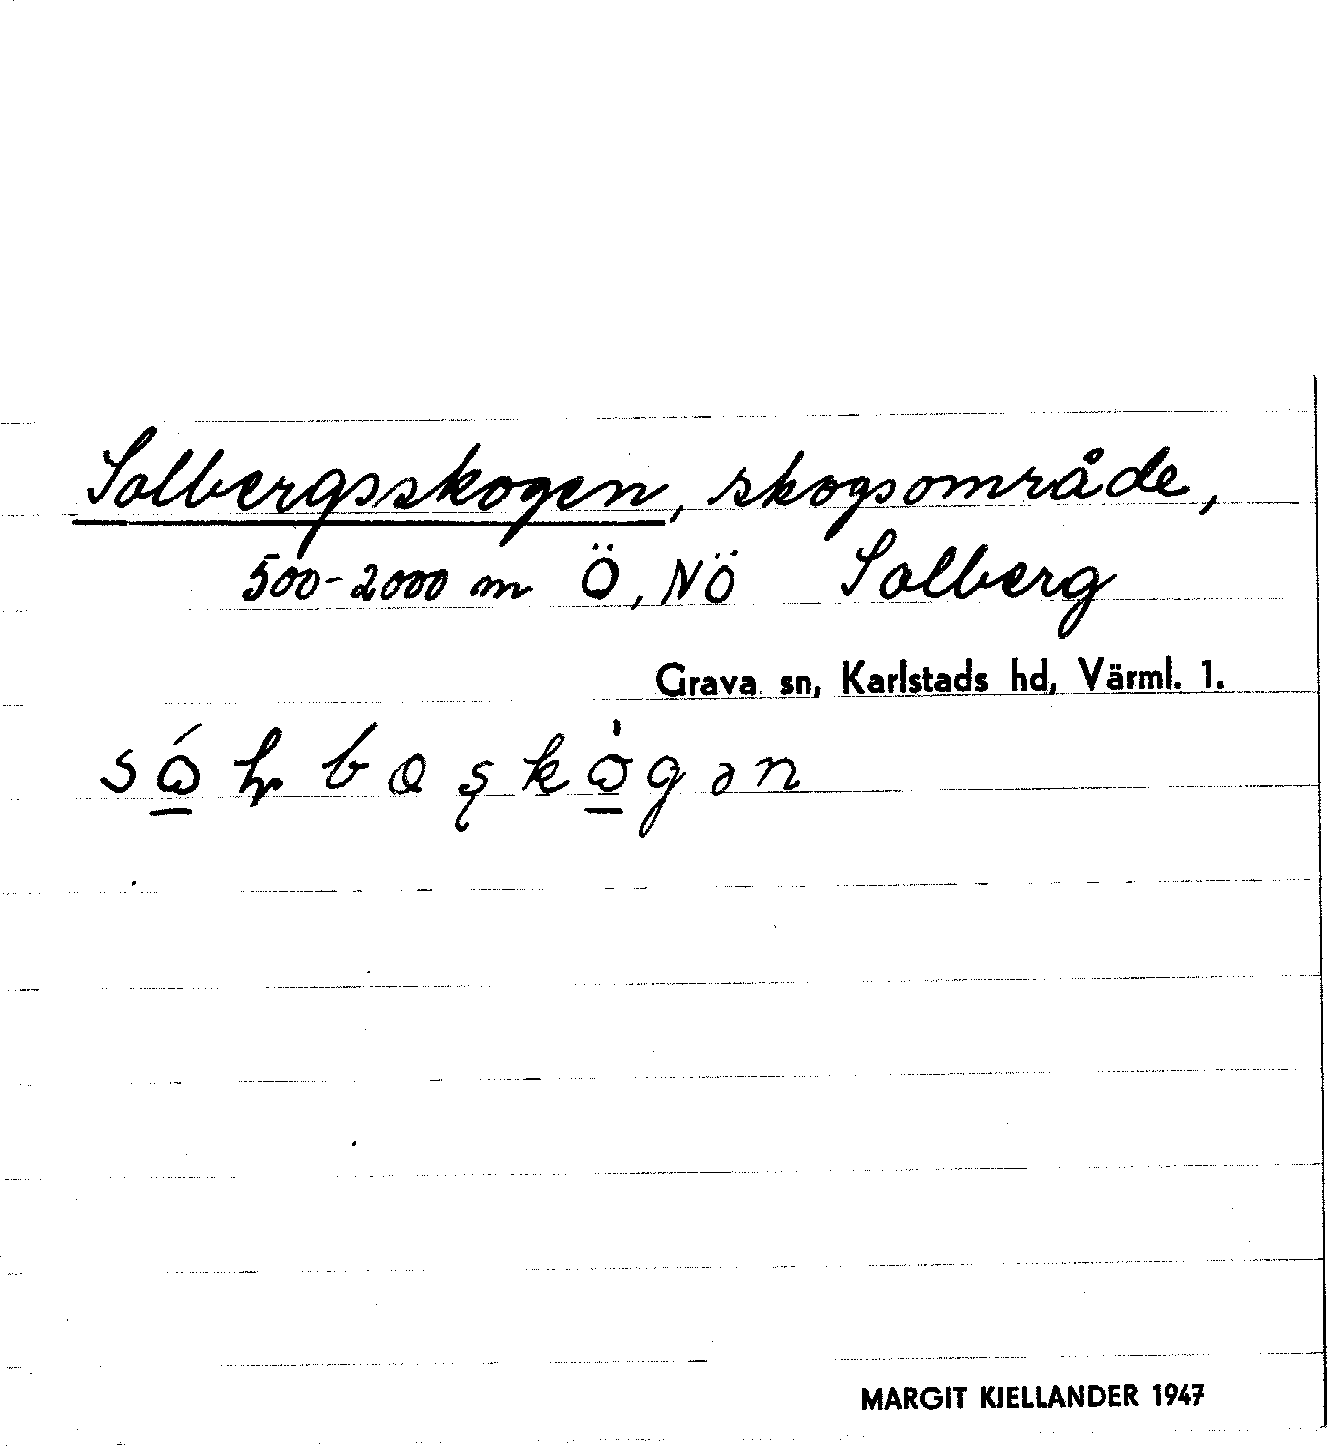 Solbergsskogen, skogsområde,
500-2000 m Ö, NÖ Solberg
Grava sn, Karlstads hd, Värml. 1.
MARGIT KJELLANDER 1947